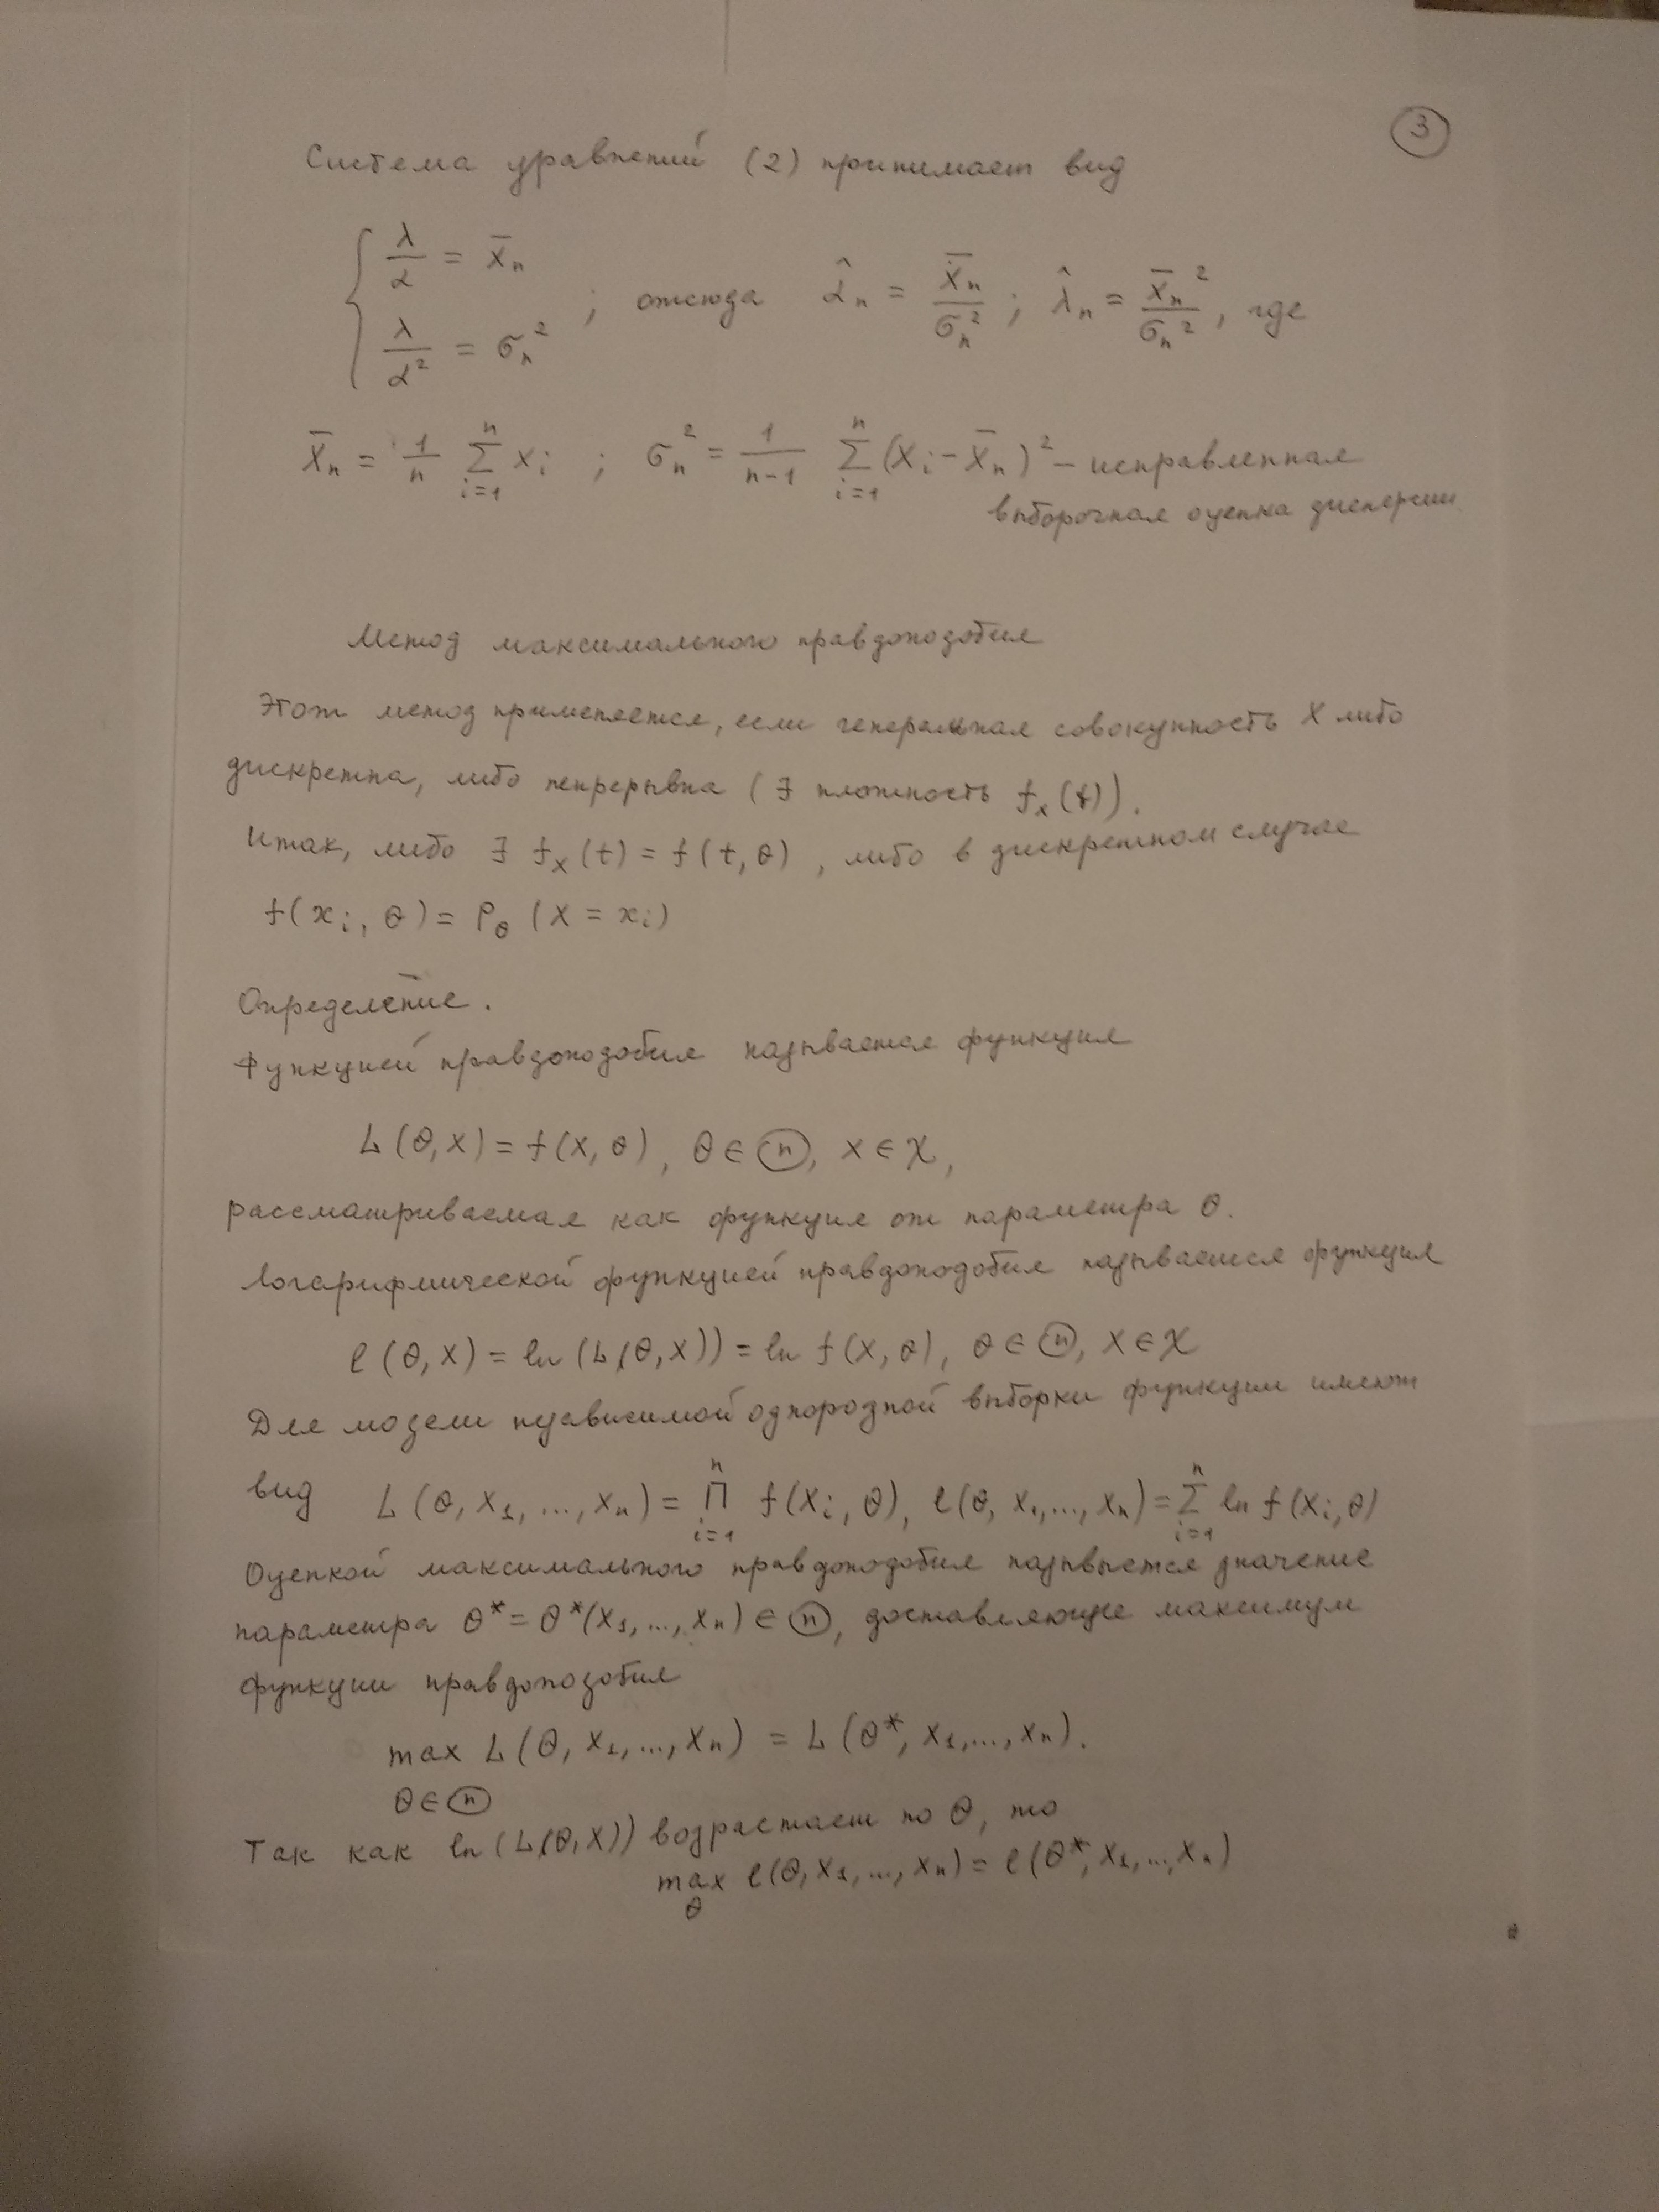 3
Система уравнений (2) принимает вид
{ λ/α = X̄ₙ
; отсюда α̂ₙ = X̄ₙ/σₙ² ; λ̂ₙ = X̄ₙ²/σₙ², где
λ/α² = σₙ²
X̄ₙ = 1/n ∑ᵢ₌₁ⁿ Xᵢ ; σₙ² = 1/(n-1) ∑ᵢ₌₁ⁿ (Xᵢ - X̄ₙ)² – исправленная
выборочная оценка дисперсии.
Метод максимального правдоподобия
Этот метод применяется, если генеральная совокупность X либо
дискретна, либо непрерывна (∃ плотность fₓ(t)).
Итак, либо ∃ fₓ(t) = f(t, θ), либо в дискретном случае
f(xᵢ, θ) = P_θ (X = xᵢ)
Определение.
Функцией правдоподобия называется функция
L(θ, X) = f(X, θ), θ ∈ Ⓗ, X ∈ 𝒳,
рассматриваемая как функция от параметра θ.
Логарифмической функцией правдоподобия называется функция
ℓ(θ, X) = ln(L(θ, X)) = ln f(X, θ), θ ∈ Ⓗ, X ∈ 𝒳
Для модели независимой однородной выборки функции имеют
вид L(θ, X₁, ..., Xₙ) = ∏ᵢ₌₁ⁿ f(Xᵢ, θ), ℓ(θ, X₁, ..., Xₙ) = ∑ᵢ₌₁ⁿ ln f(Xᵢ, θ)
Оценкой максимального правдоподобия называется значение
параметра θ* = θ*(X₁, ..., Xₙ) ∈ Ⓗ, доставляющие максимум
функции правдоподобия
max L(θ, X₁, ..., Xₙ) = L(θ*, X₁, ..., Xₙ).
θ ∈ Ⓗ
Так как ln(L(θ, X)) возрастает по θ, то
max ℓ(θ, X₁, ..., Xₙ) = ℓ(θ*, X₁, ..., Xₙ)
θ